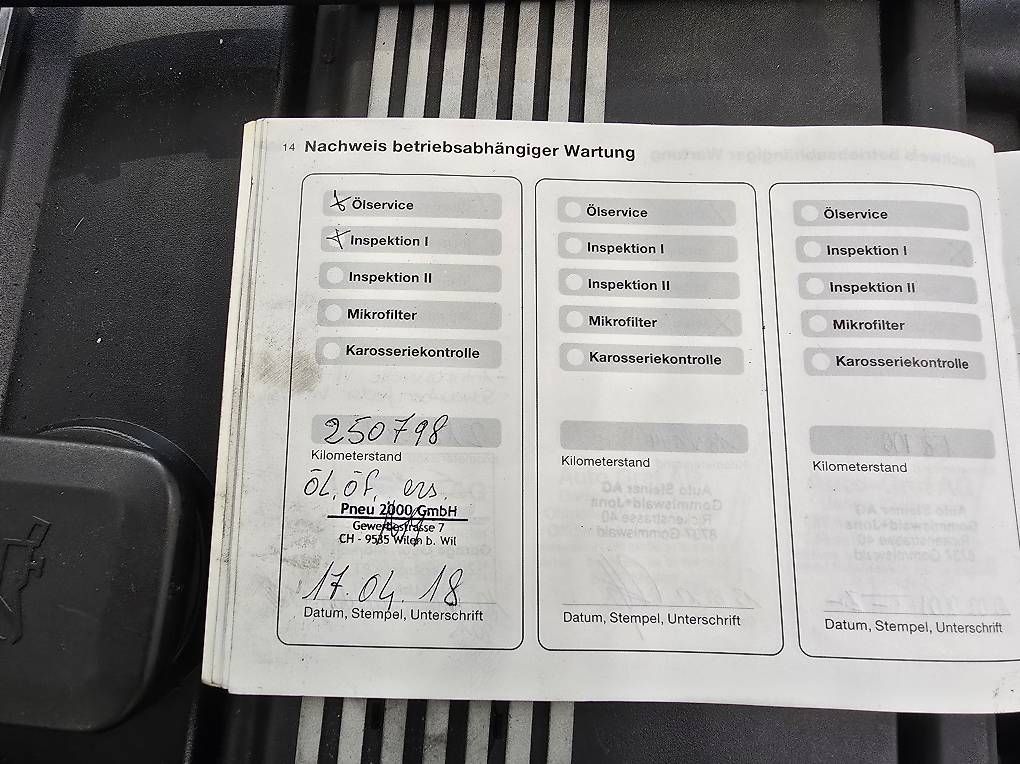 14 Nachweis betriebsabhängiger Wartung
Ölservice
Inspektion I
Inspektion II
Mikrofilter
Karosseriekontrolle
250798
Kilometerstand
Öl, öf, ers.
Pneu 2000 GmbH
Gewerbestrasse 7
CH - 9535 Wilen b. Wil
17.04.18
Datum, Stempel, Unterschrift
Ölservice
Inspektion I
Inspektion II
Mikrofilter
Karosseriekontrolle
Kilometerstand
Datum, Stempel, Unterschrift
Ölservice
Inspektion I
Inspektion II
Mikrofilter
Karosseriekontrolle
Kilometerstand
Datum, Stempel, Unterschrift